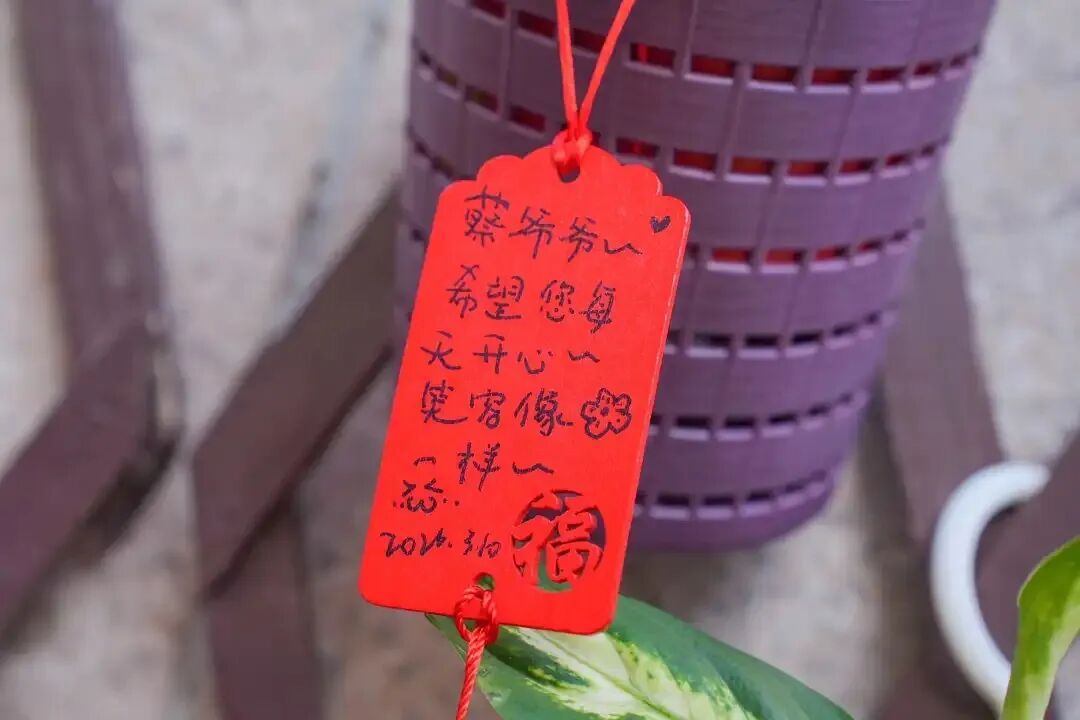 蔡爷爷~
希望您每
天开心~
笑容像
一样~
2026.3.10
福